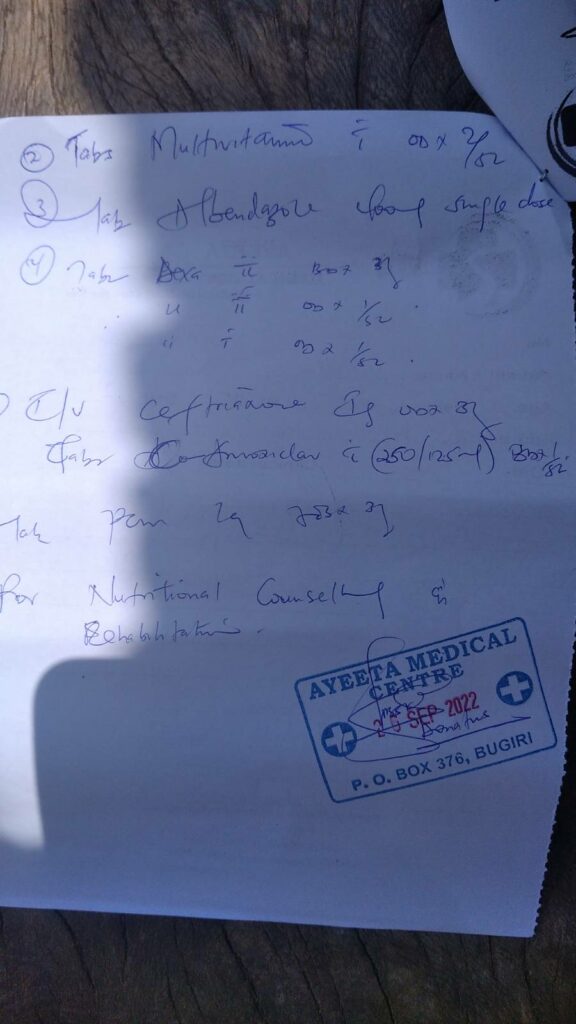 ② Tabs Multivitamin i OD x 2/52
③ Tab Albendazole 400mg single dose
④ Tabs Dexa ii BD x 3/7
" ii OD x 1/52.
" i OD x 1/52.
I/V Ceftriaxone 2g OD x 3/7
Tabs Co-Amoxiclav i (250/125mg) BD x 1/52.
Tab PCM 1g TDS x 3/7
For Nutritional Counselling &
Rehabilitation.
AYEETA MEDICAL
CENTRE
SEP 2022
Donatus
P. O. BOX 376, BUGIRI